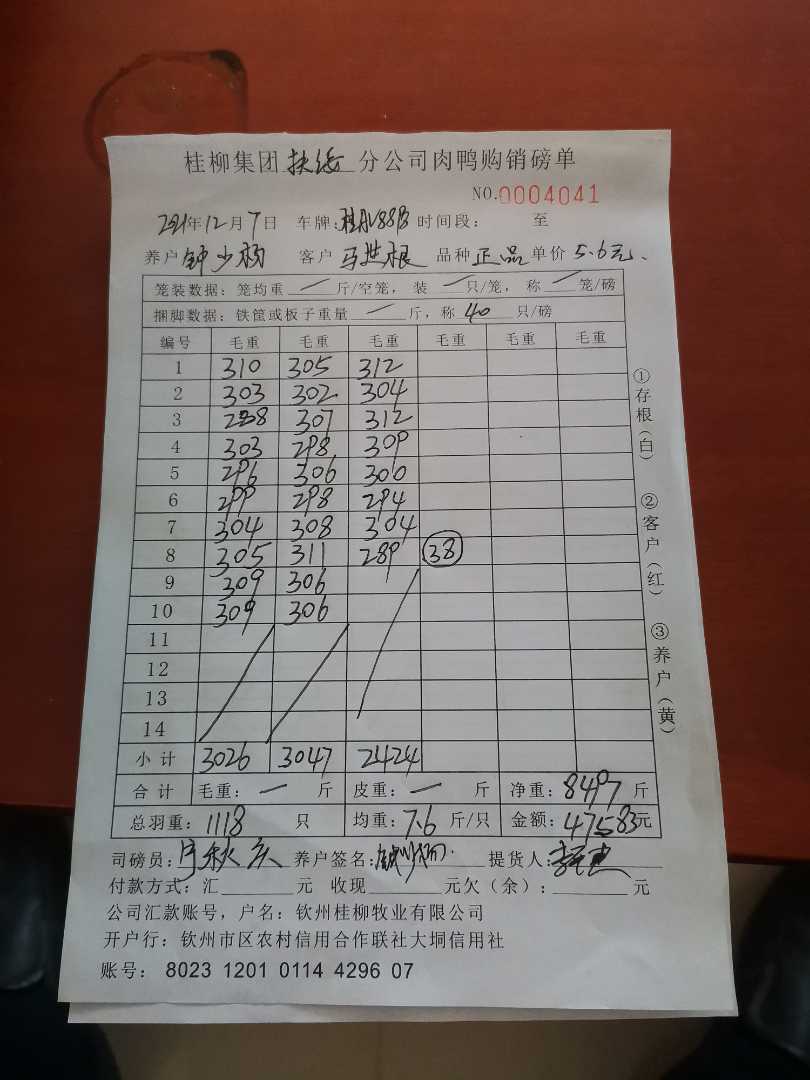 桂柳集团 扶绥 分公司肉鸭购销磅单
NO.0004041
2021年12月7日 车牌: 时间段： 至
养户 钟少杨 客户 马胜根 品种 正品 单价 5.6元、
笼装数据：笼均重 一 斤/空笼，装 一 只/笼，称 一 笼/磅
捆脚数据：铁筐或板子重量 一 斤，称 40 只/磅
编号 毛重 毛重 毛重 毛重 毛重 毛重
1 310 305 312
2 303 302 304
3 288 307 312
4 303 298 309
5 296 306 300
6 299 298 294
7 304 308 304
8 305 311 289 38
9 309 306
10 309 306
11
12
13
14
小计 3026 3047 2424
合计 毛重：一 斤 皮重：一 斤 净重：8497 斤
总羽重：1118 只 均重：7.6 斤/只 金额：47583元
司磅员： 养户签名： 提货人：
付款方式：汇 元 收现 元欠（余）： 元
公司汇款账号，户名：钦州桂柳牧业有限公司
开户行：钦州市区农村信用合作联社大垌信用社
账号： 8023 1201 0114 4296 07
①存根（白）
②客户（红）
③养户（黄）